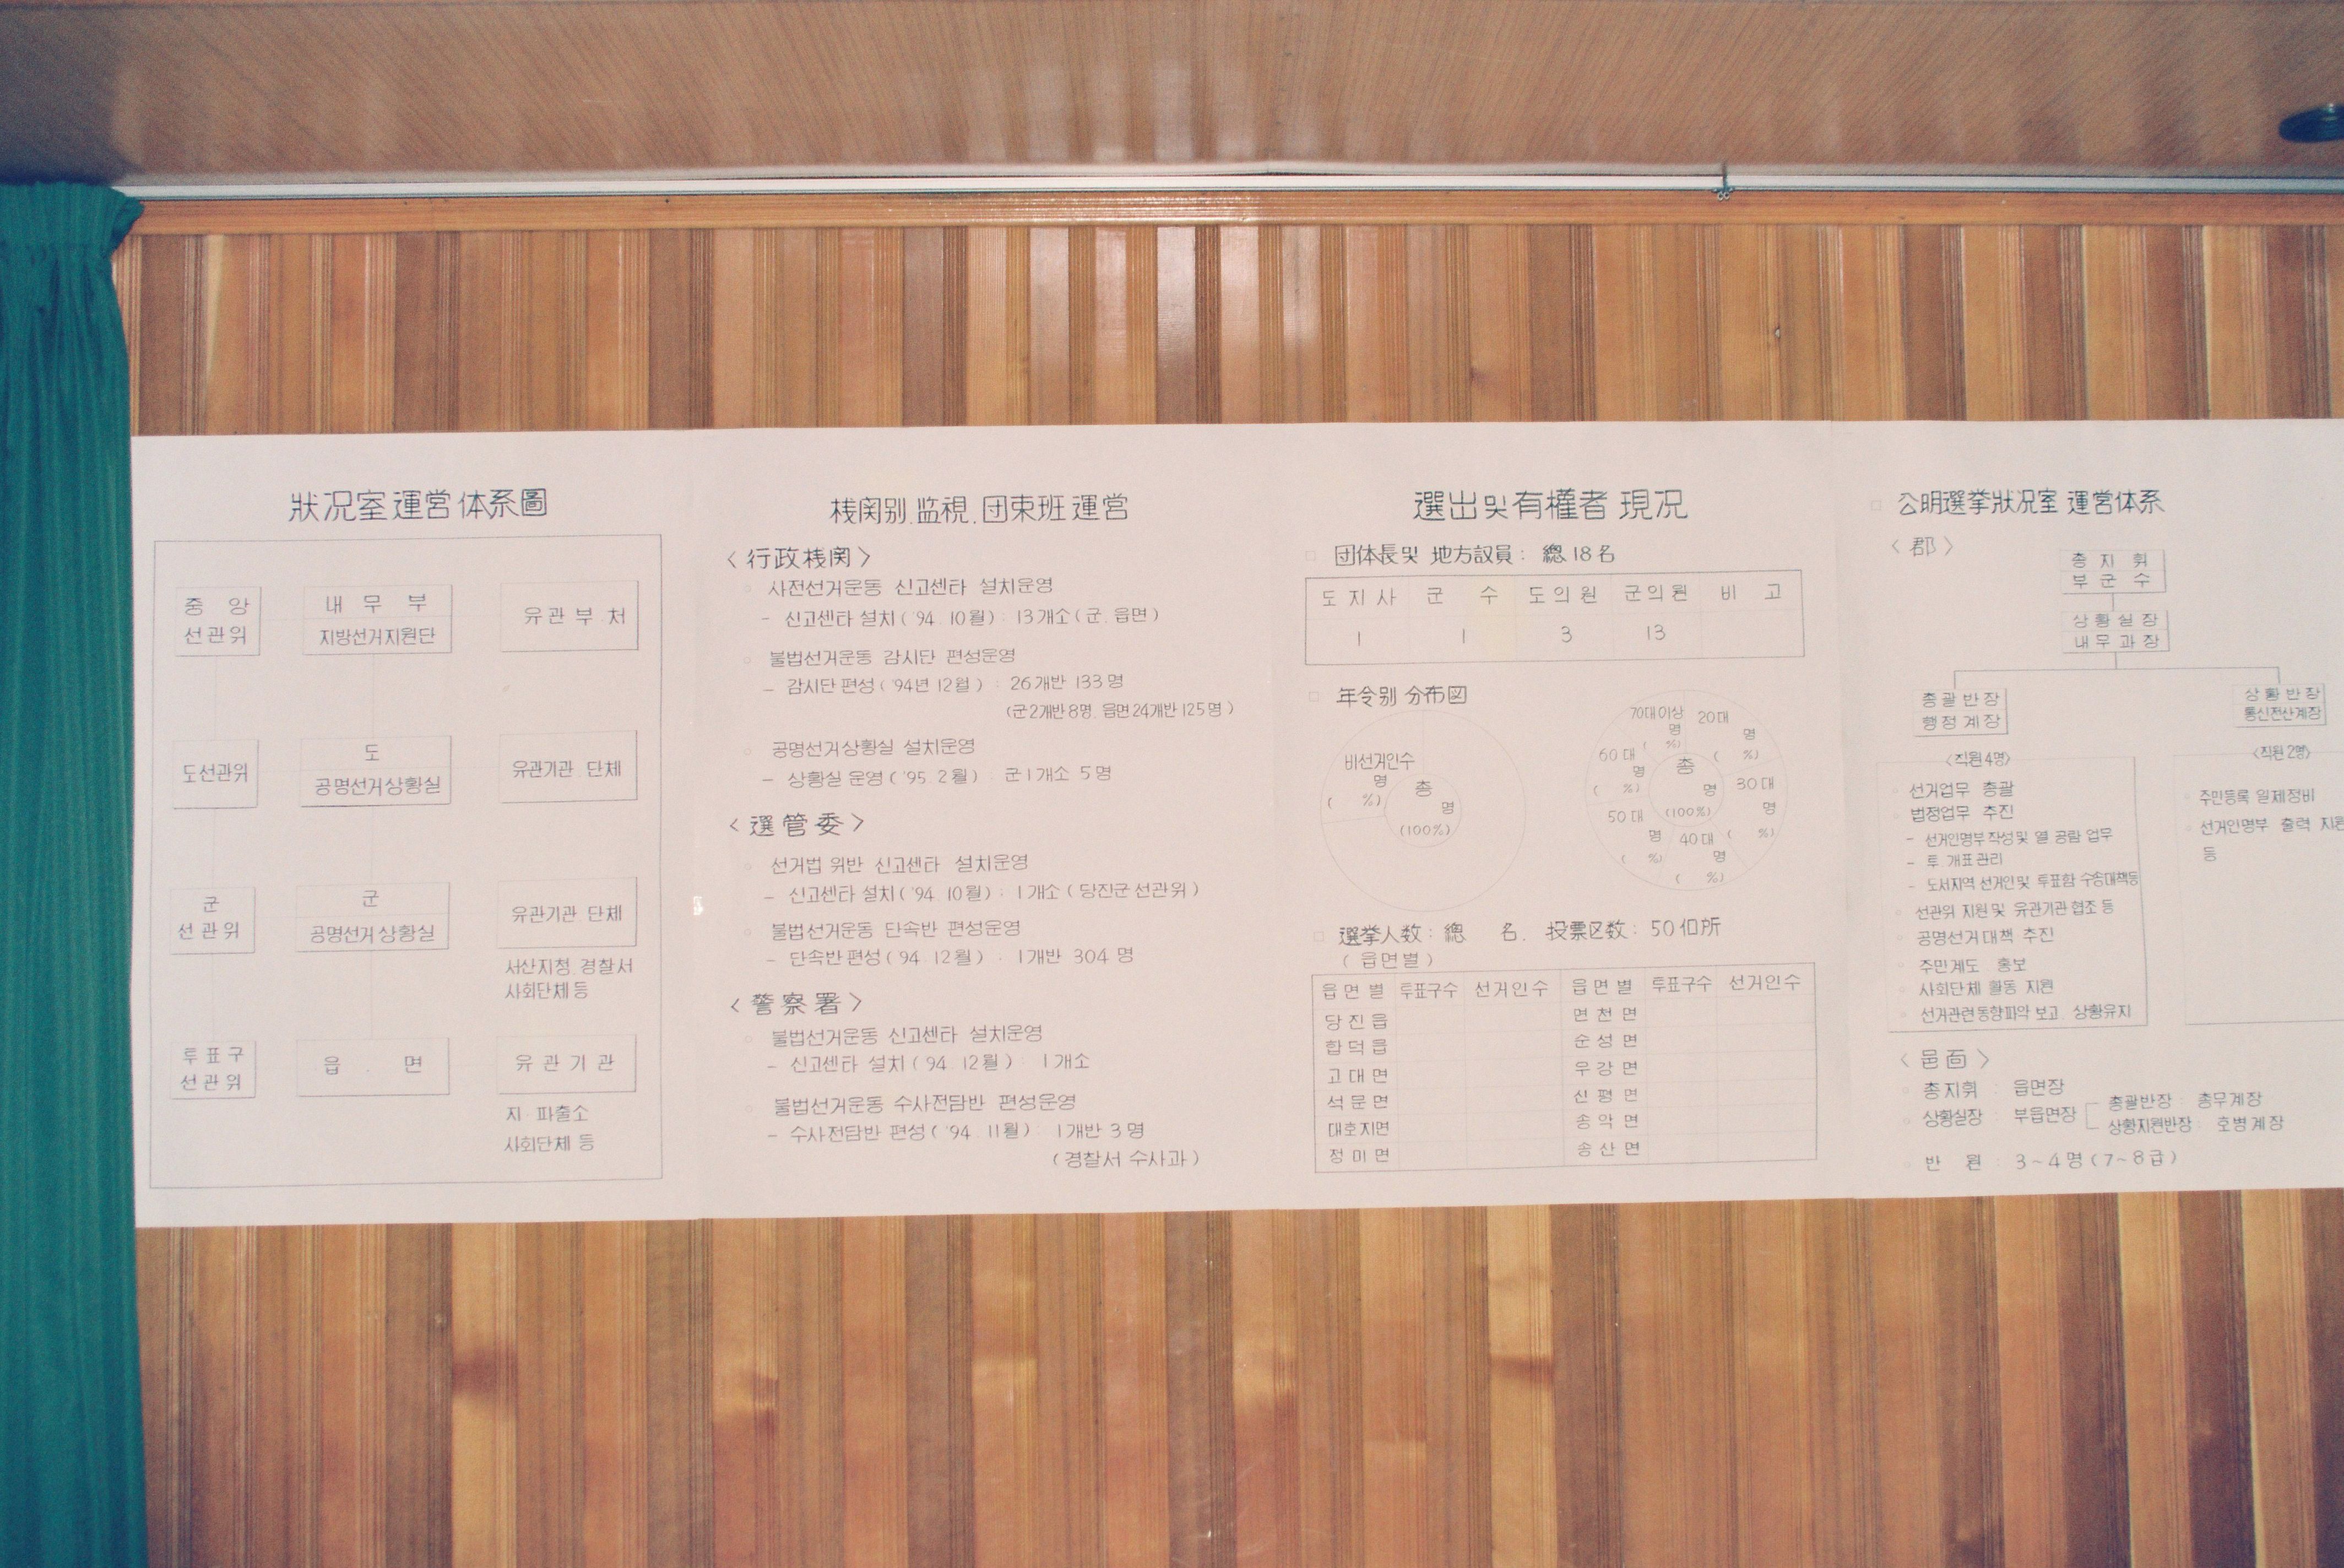 狀况室運営体系圖
중 앙
선관위
내 무 부
지방선거지원단
유관부.처
도선관위
도
공명선거상황실
유관기관.단체
군
선관위
군
공명선거상황실
유관기관.단체
서산지청.경찰서
사회단체 등
투표구
선관위
읍 . 면
유관기관
지.파출소
사회단체 등
機関别.监視.団束班運営
〈行政機関〉
사전선거운동 신고센타 설치운영
- 신고센타 설치('94.10월) : 13개소(군.읍면)
불법선거운동 감시단 편성운영
- 감시단 편성('94년 12월) : 26개반 133명
(군2개반8명. 읍면24개반125명)
공명선거상황실 설치운영
- 상황실 운영('95.2월) : 군1개소 5명
〈選管委〉
선거법 위반 신고센타 설치운영
- 신고센타 설치('94.10월) : 1개소(당진군선관위)
불법선거운동 단속반 편성운영
- 단속반 편성('94.12월) : 1개반 304명
〈警察署〉
불법선거운동 신고센타 설치운영
- 신고센타 설치('94.12월) : 1개소
불법선거운동 수사전담반 편성운영
- 수사전담반 편성('94.11월) : 1개반 3명
(경찰서 수사과)
選出및有權者 現况
□ 団体長및 地方議員: 總18名
도지사 군 수 도의원 군의원 비 고
1 1 3 13
□ 年令别 分布図
비선거인수
명
( %)
총
명
(100%)
70대이상
명
( %)
20대
명
( %)
60대
명
( %)
총
명
(100%)
30대
명
( %)
50대
명
( %)
40대
명
( %)
□ 選挙人数: 總 名. 投票区数: 50個所
(읍면별)
읍면별 투표구수 선거인수 읍면별 투표구수 선거인수
당진읍 면천면
합덕읍 순성면
고대면 우강면
석문면 신평면
대호지면 송악면
정미면 송산면
□ 公明選挙狀况室 運営体系
〈郡〉
총지휘
부군수
상황실장
내무과장
총괄반장
행정계장
상황반장
통신전산계장
〈직원4명〉
선거업무 총괄
법정업무 추진
- 선거인명부작성및 열.공람 업무
- 투.개표관리
- 도서지역 선거인및 투표함 수송대책등
선관위 지원및 유관기관협조 등
공명선거대책 추진
주민계도.홍보
사회단체 활동 지원
선거관련동향파악 보고. 상황유지
〈직원2명〉
주민등록 일제정비
선거인명부 출력 지원
등
〈邑面〉
총지휘 : 읍면장
상황실장 : 부읍면장
총괄반장 : 총무계장
상황지원반장 : 호병계장
반 원 : 3~4명(7~8급)